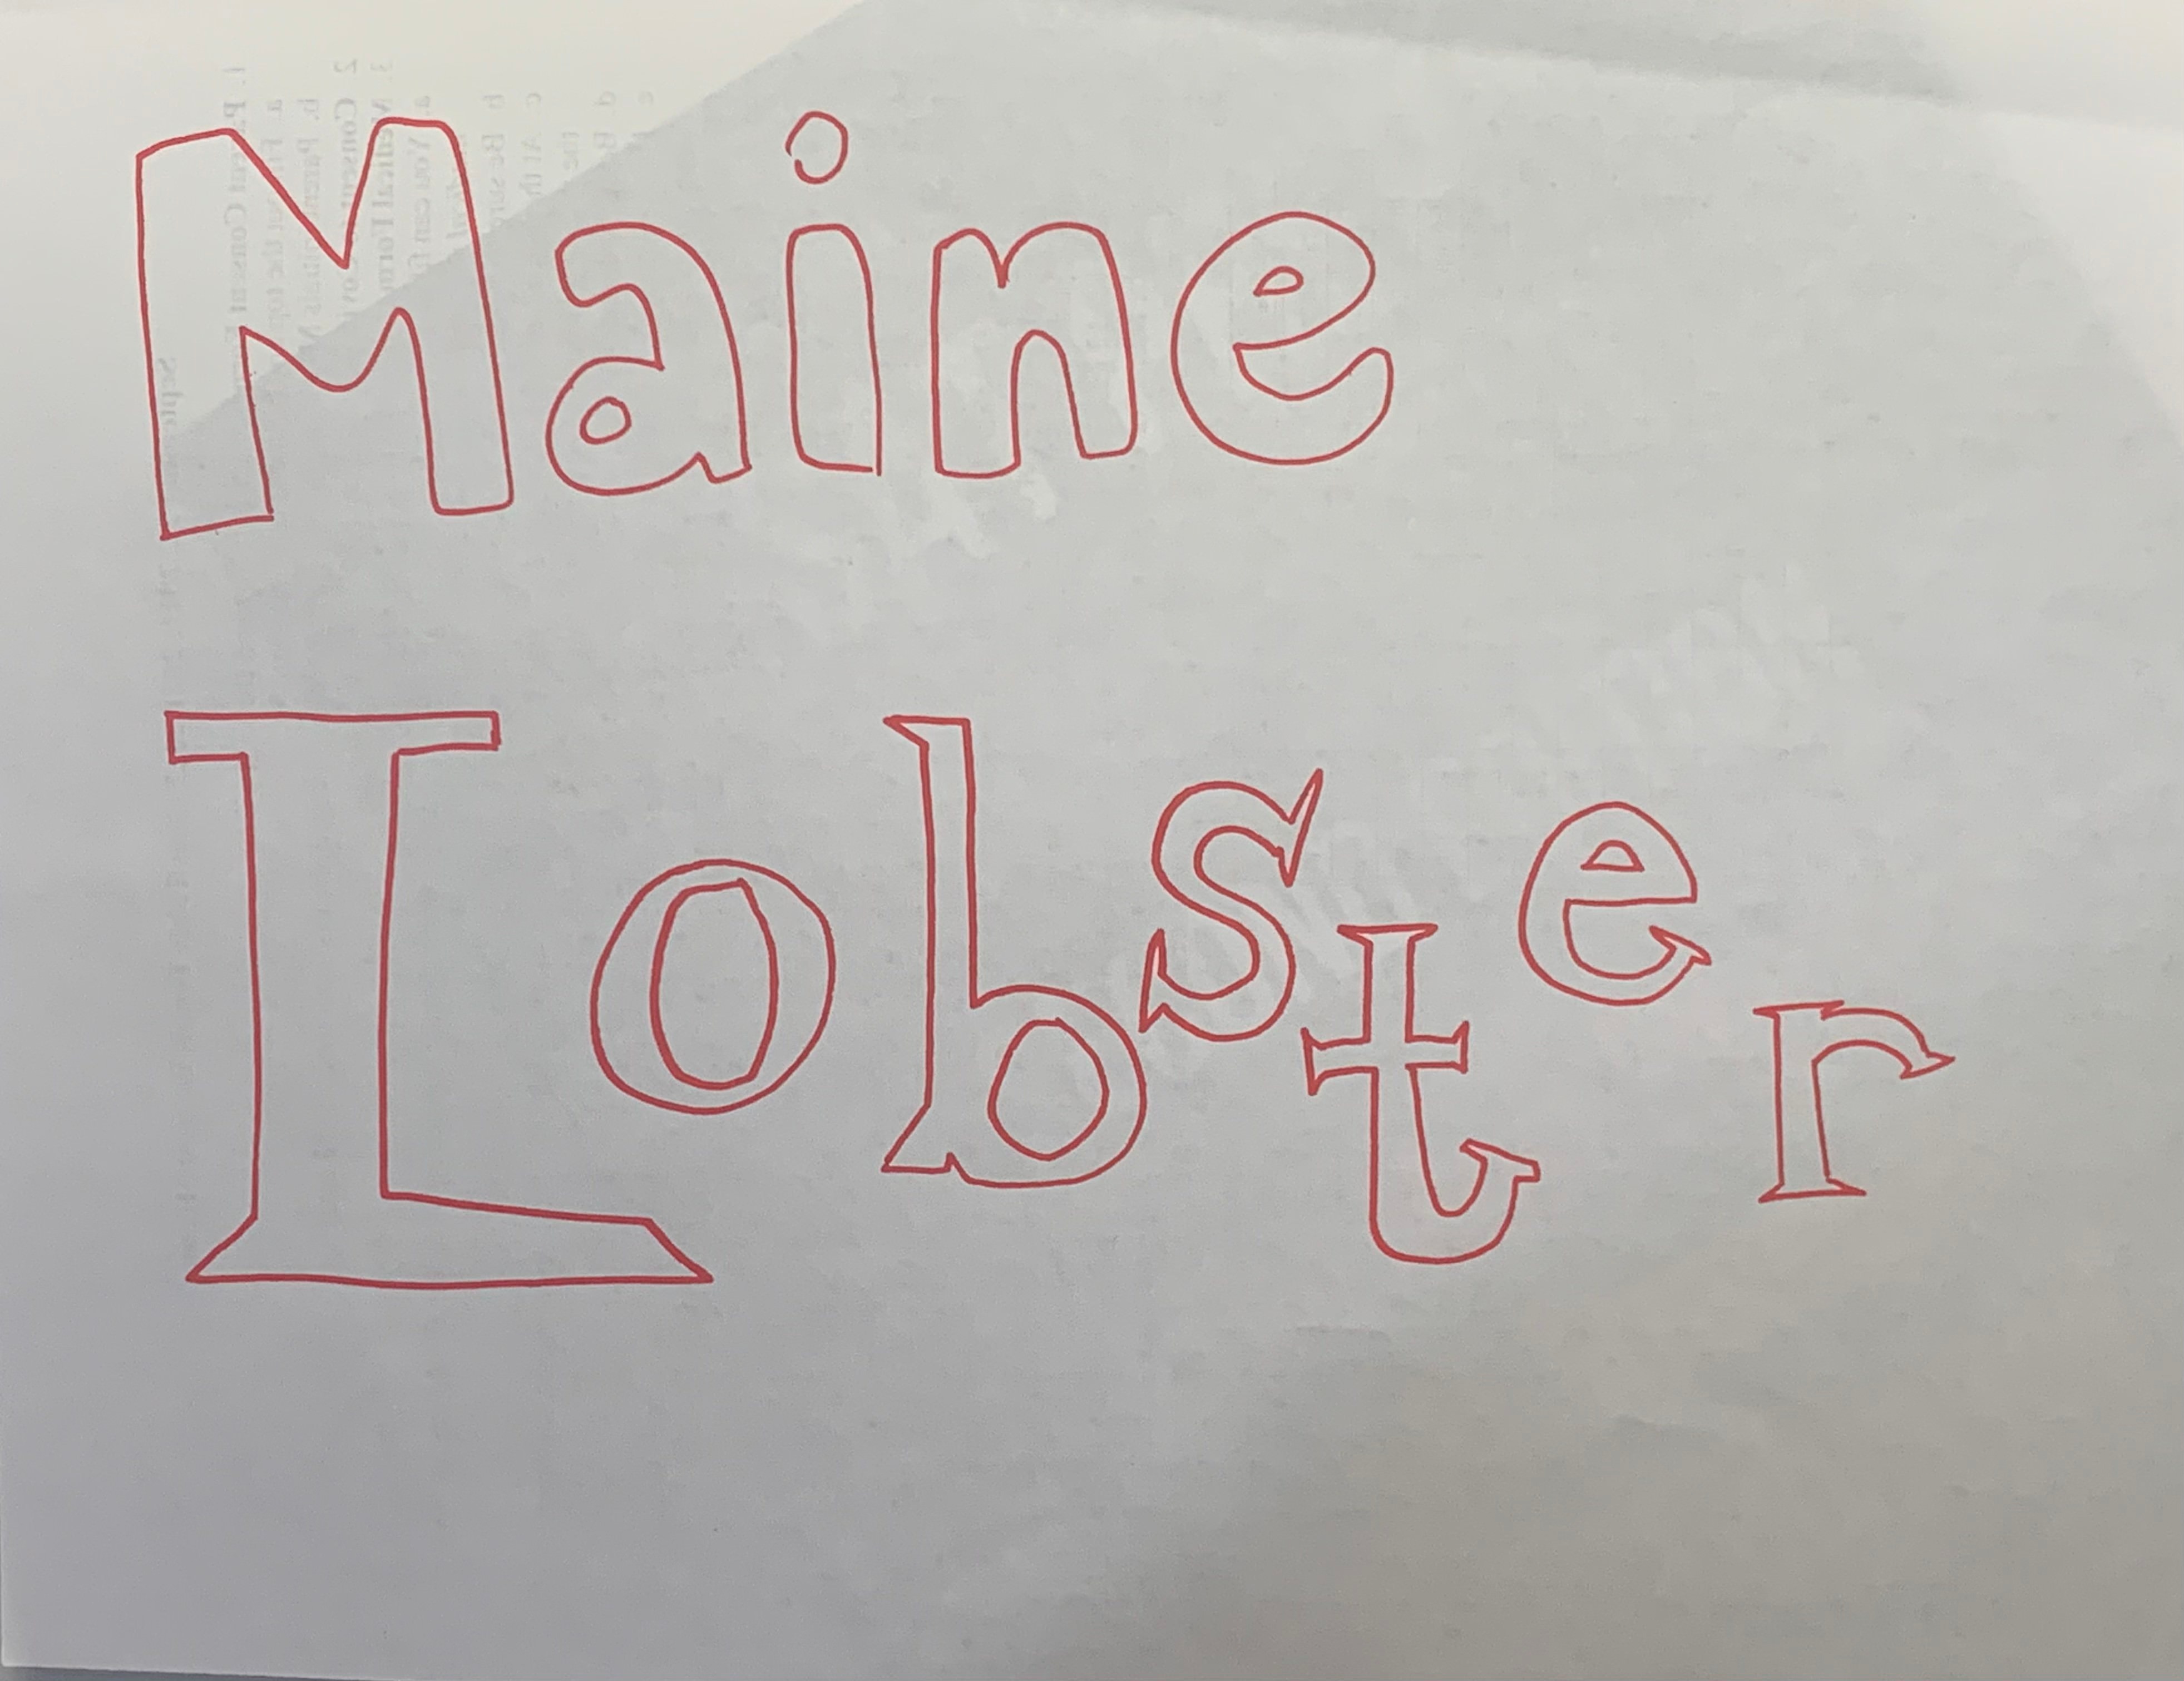 Maine
Lobster